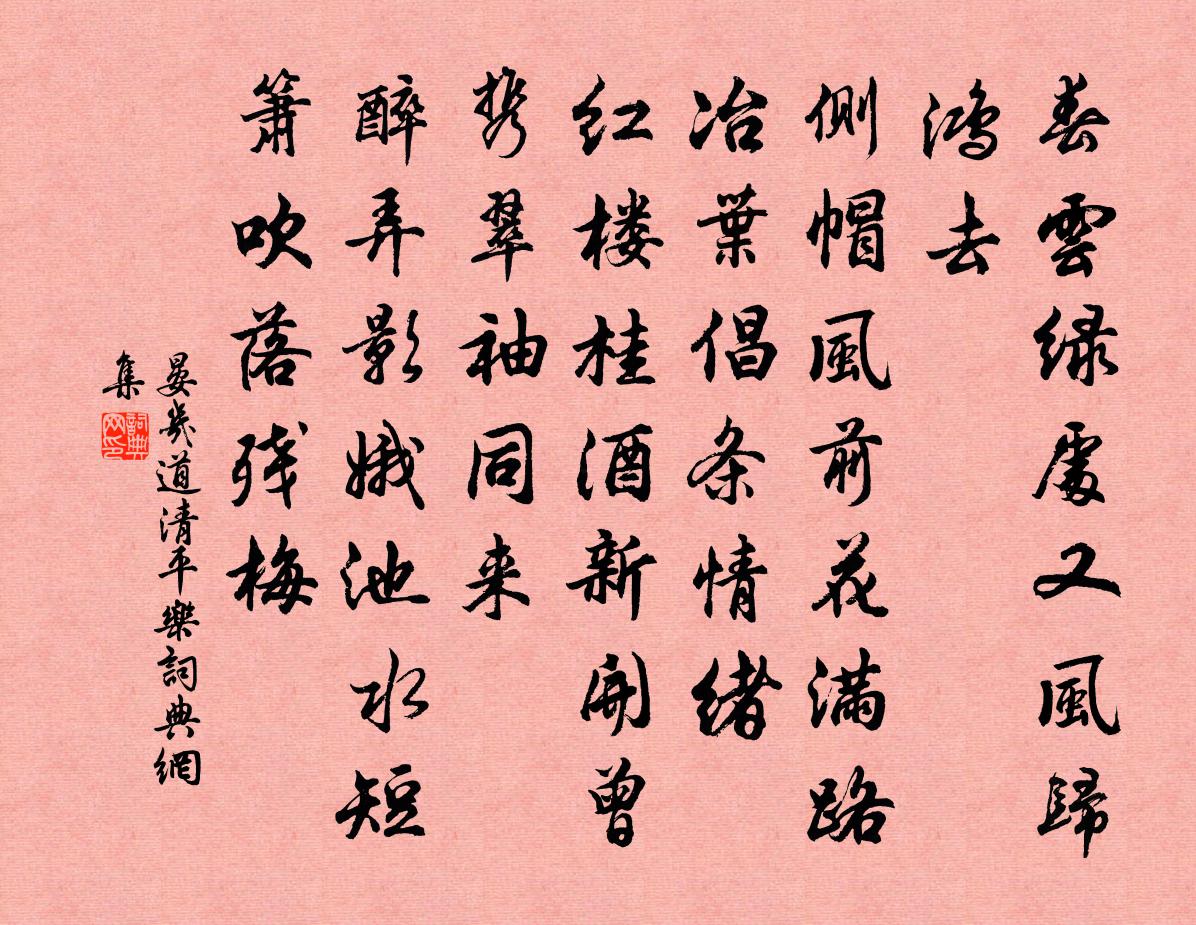 春雲緑處又風歸
鴻去
側帽風前花满路
冶葉倡条情緒
紅楼桂酒新開曾
携翠袖同来
醉弄影娥池水短
箫吹落残梅
晏幾道清平樂詞典網
集
詞典网印